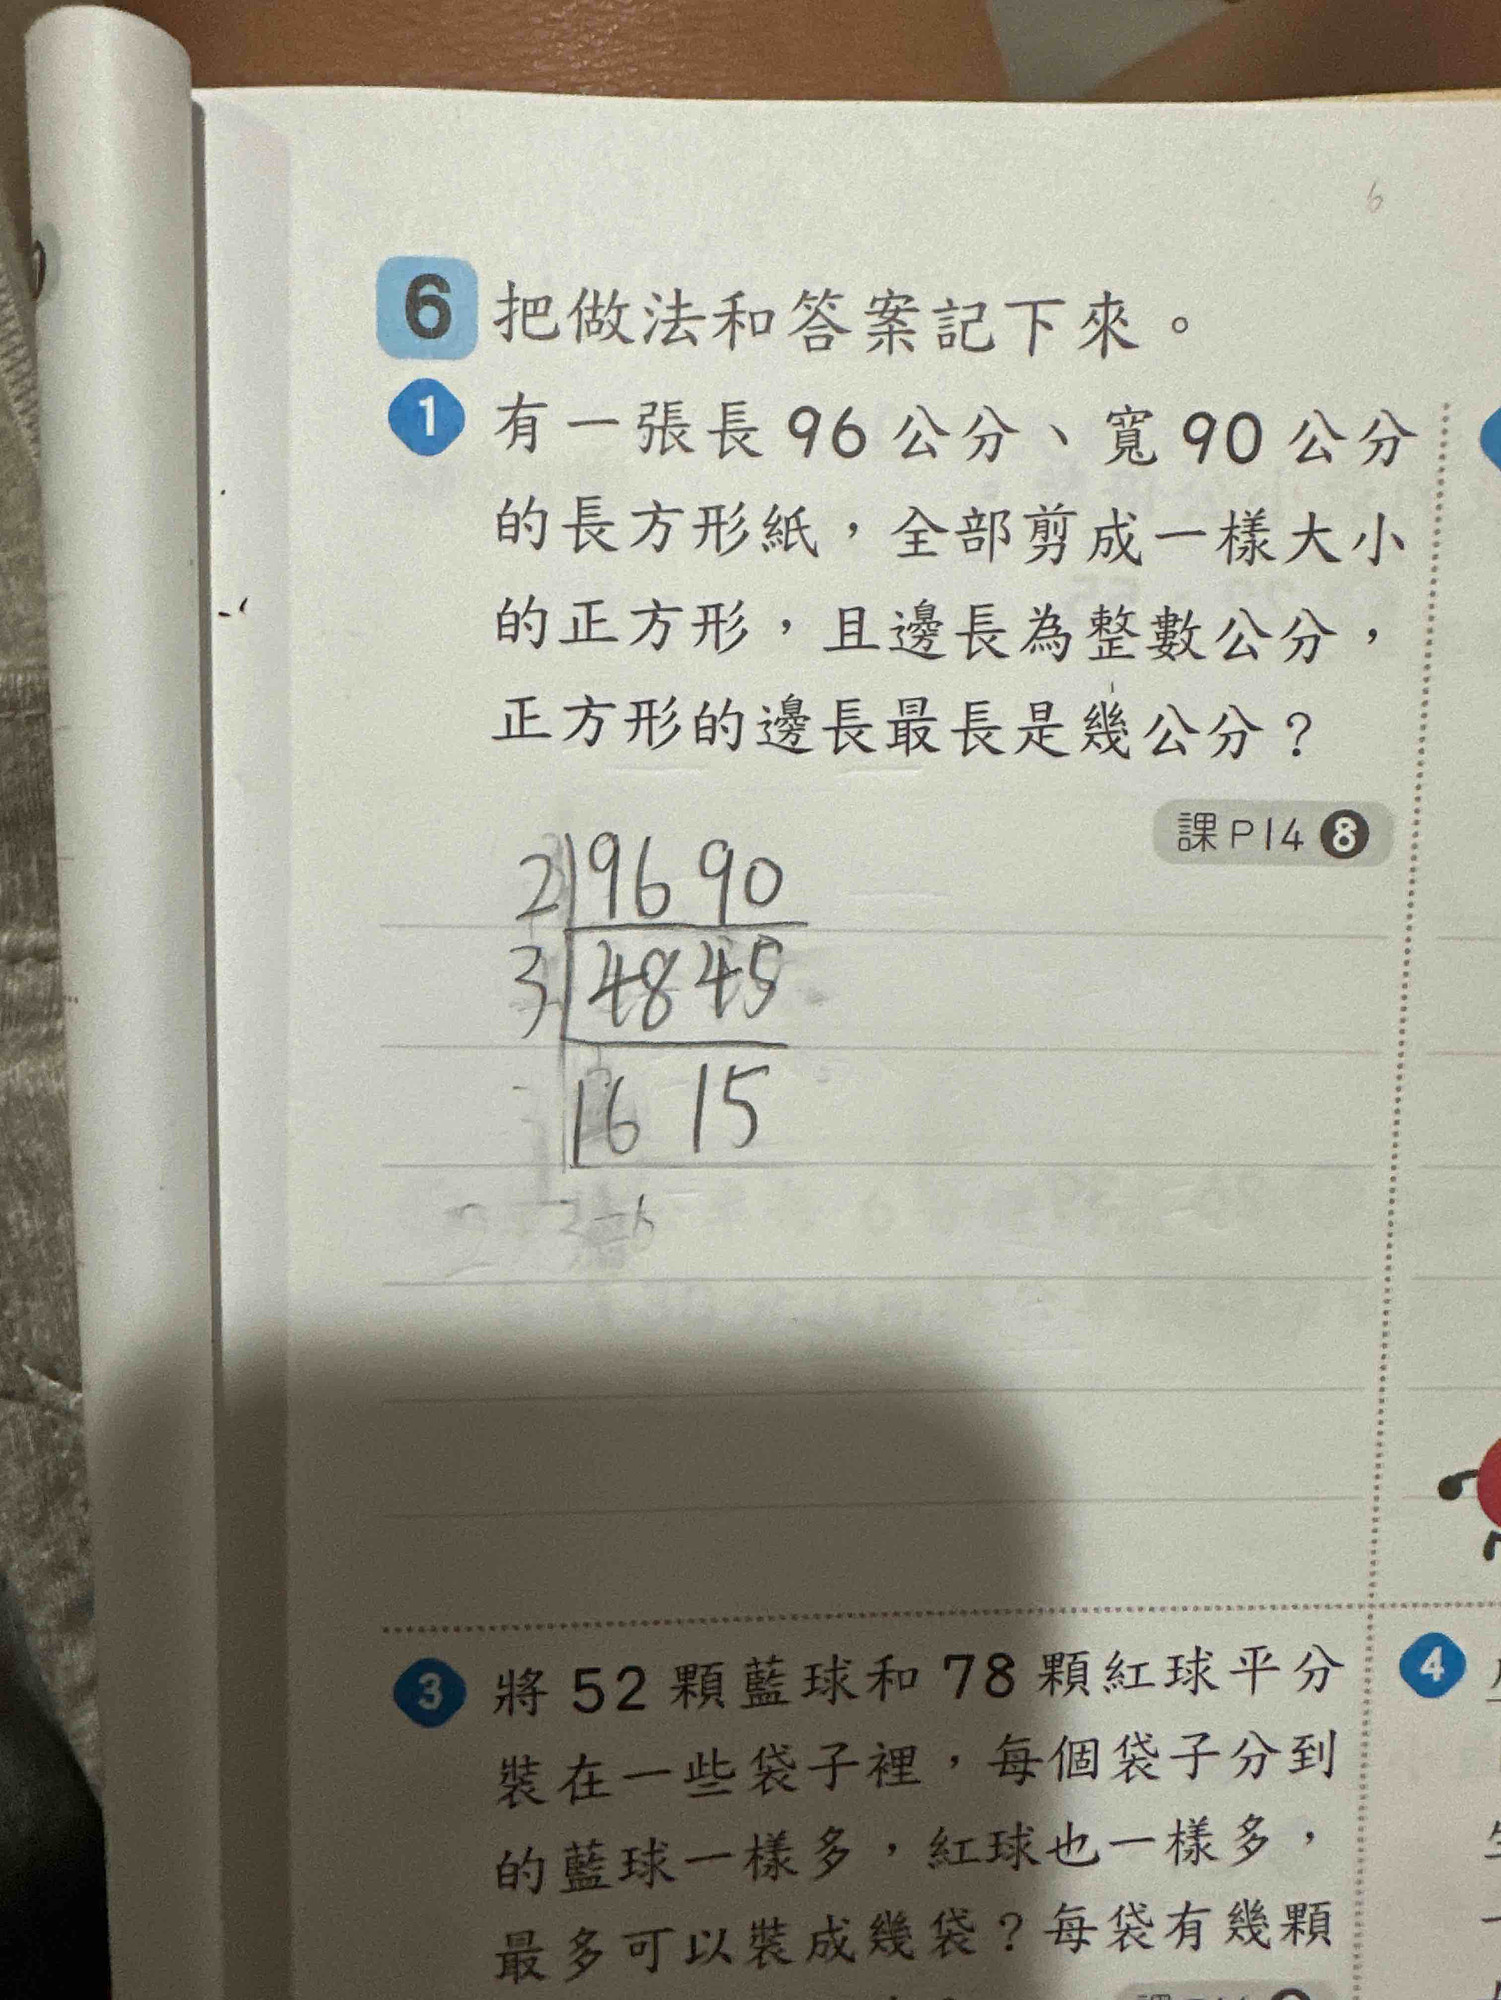 6
6 把做法和答案記下來。
1 有一張長96公分、寬90公分
的長方形紙，全部剪成一樣大小
的正方形，且邊長為整數公分，
正方形的邊長最長是幾公分？
課P14 8
2 96 90
3 48 45
16 15
3 將52顆藍球和78顆紅球平分
裝在一些袋子裡，每個袋子分到
的藍球一樣多，紅球也一樣多，
最多可以裝成幾袋？每袋有幾顆
4